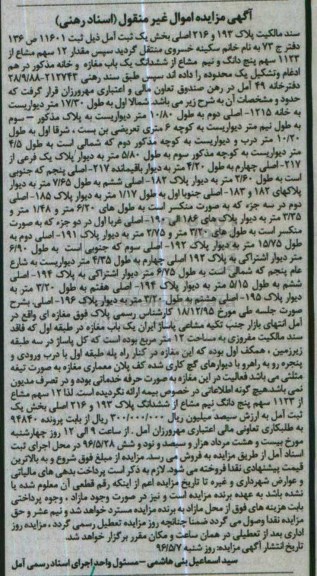 آگهی مزایده اموال غیر منقول (اسناد رهنی)
سند مالکیت پلاک ۱۹۳ و ۲۱۶ اصلی بخش یک ثبت آمل ذیل ثبت ۱۱۶۰۱ ص ۱۳۶
دفتر ج ۷۳ به نام خانم سکینه خسروی منتقل گردید سپس مقدار ۱۲ سهم مشاع از
۱۱۲۳ سهم پنج دانگ و نیم مشاع از ششدانگ یک باب مغازه و خانه مذکور در هم
ادغام وتشکیل یک محدوده را داده اند سپس طبق سند رهنی ۲۱۲۷۴۳-۲۸/۹/۸۸
دفترخانه ۴۹ آمل در رهن صندوق تعاون مالی و اعتباری مهرورزان قرار گرفت که
حدود و مشخصات آن به شرح زیر می باشد. شمالا اول به طول ۱۷/۳۰ متر دیواریست
به خانه ۱۲۱۵- اصلی دوم به طول ۱۰/۸۰ متر دیواریست به پلاک مذکور – سوم
به طول نیم متر دیواریست به کوچه ۶ متری تعریضی بن بست ، شرقا اول به طول
۱۰/۲۰ متر درب و دیواریست به کوچه مذکور دوم که شمالی است به طول ۴/۵
متر دیواریست به کوچه مذکور سوم به طول ۵/۸۰ متر به دیوار پلاک یک فرعی از
۲۱۷- اصلی چهارم به طول ۴/۲۰ متر به دیوار باقیمانده ۲۱۷- اصلی پنجم که جنوبی
است به طول ۳/۶۰ متر به دیوار پلاک ۱۸۲- اصلی ششم به طول ۷/۶۵ متر به دیوار
پلاکهای ۱۸۲ و ۱۸۳- اصلی جنوبا اول به طول ۱/۱۷ متر به دیوار پلاک ۱۸۵- اصلی
دوم در سه جزء که به صورت منکسر است به طول های ۶/۲۰ متر و ۱/۴۸ متر و
۳/۳۵ متر به دیوار پلاک های ۱۸۶ الی ۱۹۰- اصلی غربا اول در دو جزء که به صورت
منکسر است به طول های ۳/۲۰ متر و ۲/۷۵ متر به دیوار پلاک ۱۹۱- اصلی دوم به
طول ۱۵/۷۵ متر به دیوار پلاک ۱۹۲- اصلی سوم که جنوبی است به طول ۶/۹۰
متر دیوار اشتراکی به پلاک ۱۹۲ اصلی چهارم به طول ۴/۳۵ متر دیواریست به شارع
عام پنجم که شمالی است به طول ۶/۷۵ متر دیوار اشتراکی به پلاک ۱۹۴- اصلی
ششم به طول ۵/۱۵ متر به دیوار پلاک ۱۹۴- اصلی هفتم به طول ۳/۲۰ متر به
دیوار پلاک ۱۹۵- اصلی هشتم به طول ۳/۲۰ متر به دیوار پلاک ۱۹۶- اصلی. بشرح
صورت جلسه ملی مورخ ۱۸/۱۲/۹۵ کارشناس رسمی پلاک فوق مغازه ای واقع در
آمل انتهای بازار جنب تکیه مشاعی پاساژ ایران یک باب مغازه در طبقه اول که فاقد
سند مالکیت مفروزی به مساحت ۱۲ متر مربع بوده است که کل پاساژ در سه طبقه
زیرزمین ، همکف اول بوده که این مغازه در کنار راه پله طبقه اول با درب ورودی و
پنجره رو به راهرو با دیوارهای گچ کاری شده کف پلان معماری مغازه به صورت تیغه
مثلثی می باشد فعالیت در این مغازه به صورت حرفه خدماتی بوده و در تصرف مدیون
نمی باشد هیچ گونه اطلاعاتی در خصوص بیمه ارائه نگردیده است. لذا ۱۲ سهم مشاع
از ۱۱۲۳ سهم پنج دانگ نیم مشاع از ششدانگ پلاک ۱۹۳ و ۲۱۶ اصلی بخش یک
ثبت آمل به ارزش سیصد میلیون ریال ۳۰۰/۰۰۰/۰۰۰ ریال از بابت پرونده ۹۴۸۴۰
به طلبکاری تعاونی مالی اعتباری مهرورزان آمل . از ساعت ۹ الی ۱۲ روز چهارشنبه
مورخ بیست و هشت مرداد هزار و سیصد و نود و شش ۹۶/۵/۲۸ در محل اجرای ثبت
اسناد آمل از طریق مزایده به فروش می رسد. مزایده از مبلغ فوق شروع و به بالاترین
قیمت پیشنهادی نقدا فروخته می شود. لازم به ذکر است پرداخت بدهی های مالیاتی
و عوارض شهرداری و غیره تا تاریخ مزایده اعم از اینکه رقم قطعی آن معلوم شده یا
نشده باشد به عهده برنده مزایده است و نیز در صورت وجود مازاد ، وجوه پرداختی
بابت هزینه های فوق از محل مازاد به برنده مزایده مسترد خواهد شد و نیم عشر و حق
مزایده نقدا وصول می گردد ضمنا چنانچه روز مزایده تعطیل رسمی گردد ، مزایده روز
اداری بعد از تعطیلی در همان ساعت و مکان مقرر برگزار خواهد شد.
تاریخ انتشار آگهی مزایده: روز شنبه ۹۶/۵/۷
سید اسماعیل بنی هاشمی – مسئول واحد اجرای اسناد رسمی آمل